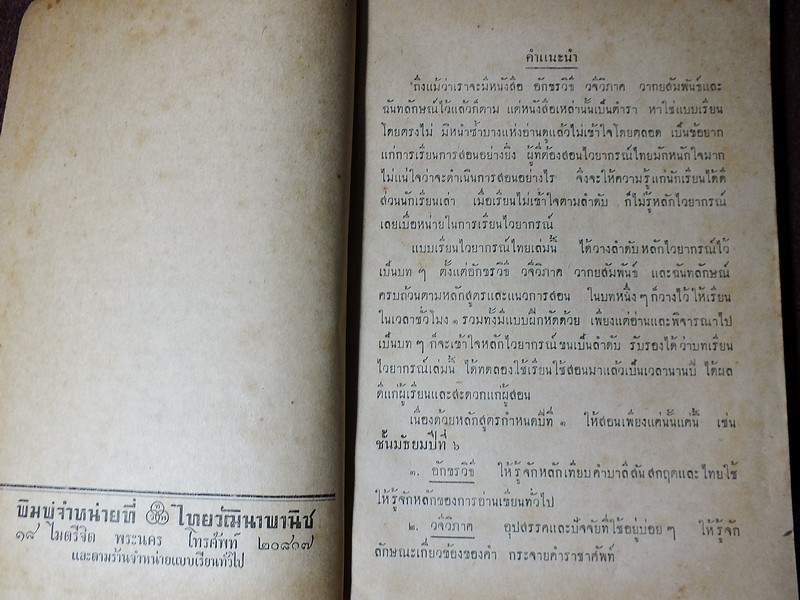 พิมพ์จำหน่ายที่ ไทยวัฒนาพานิช
๑๘ ไมตรีจิต พระนคร โทรศัพท์ ๒๐๘๑๗
และตามร้านจำหน่ายแบบเรียนทั่วไป
คำแนะนำ
ถึงแม้ว่าเราจะมีหนังสือ อักขรวิธี วจีวิภาค วากยสัมพันธ์และ
ฉันทลักษณ์ไว้แล้วก็ตาม แต่หนังสือเหล่านั้นเป็นตำรา หาใช่แบบเรียน
โดยตรงไม่ มิหนำซ้ำบางแห่งอ่านดูแล้วไม่เข้าใจโดยตลอด เป็นข้อยาก
แก่การเรียนการสอนอย่างยิ่ง ผู้ที่ต้องสอนไวยากรณ์ไทยมักหนักใจมาก
ไม่แน่ใจว่าจะดำเนินการสอนอย่างไร จึงจะให้ความรู้แก่นักเรียนได้ดี
ส่วนนักเรียนเล่า เมื่อเรียนไม่เข้าใจตามลำดับ ก็ไม่รู้หลักไวยากรณ์
เลยเบื่อหน่ายในการเรียนไวยากรณ์
แบบเรียนไวยากรณ์ไทยเล่มนี้ ได้วางลำดับหลักไวยากรณ์ไว้
เป็นบท ๆ ตั้งแต่อักขรวิธี วจีวิภาค วากยสัมพันธ์ และฉันทลักษณ์
ครบถ้วนตามหลักสูตรและแนวการสอน ในบทหนึ่ง ๆ ก็วางไว้ให้เรียน
ในเวลาชั่วโมง ๑ รวมทั้งมีแบบฝึกหัดด้วย เพียงแต่อ่านและพิจารณาไป
เป็นบท ๆ ก็จะเข้าใจหลักไวยากรณ์ขนเป็นลำดับ รับรองได้ว่าบทเรียน
ไวยากรณ์เล่มนี้ ได้ทดลองใช้เรียนใช้สอนมาแล้วเป็นเวลานานปี ได้ผล
ดีแก่ผู้เรียนและสะดวกแก่ผู้สอน
เนื่องด้วยหลักสูตรกำหนดปีที่ ๑ ให้สอนเพียงแค่นั้นแค่นี้ เช่น
ชั้นมัธยมปีที่ ๖
๑. อักขรวิธี ให้รู้จักหลักเทียบคำบาลีสันสกฤตและไทยใช้
ให้รู้จักหลักของการอ่านเขียนทั่วไป
๒. วจีวิภาค อุปสรรคและปัจจัยที่ใช้อยู่บ่อย ๆ ให้รู้จัก
ลักษณะเกี่ยวข้องของคำ กระจายคำราชาศัพท์